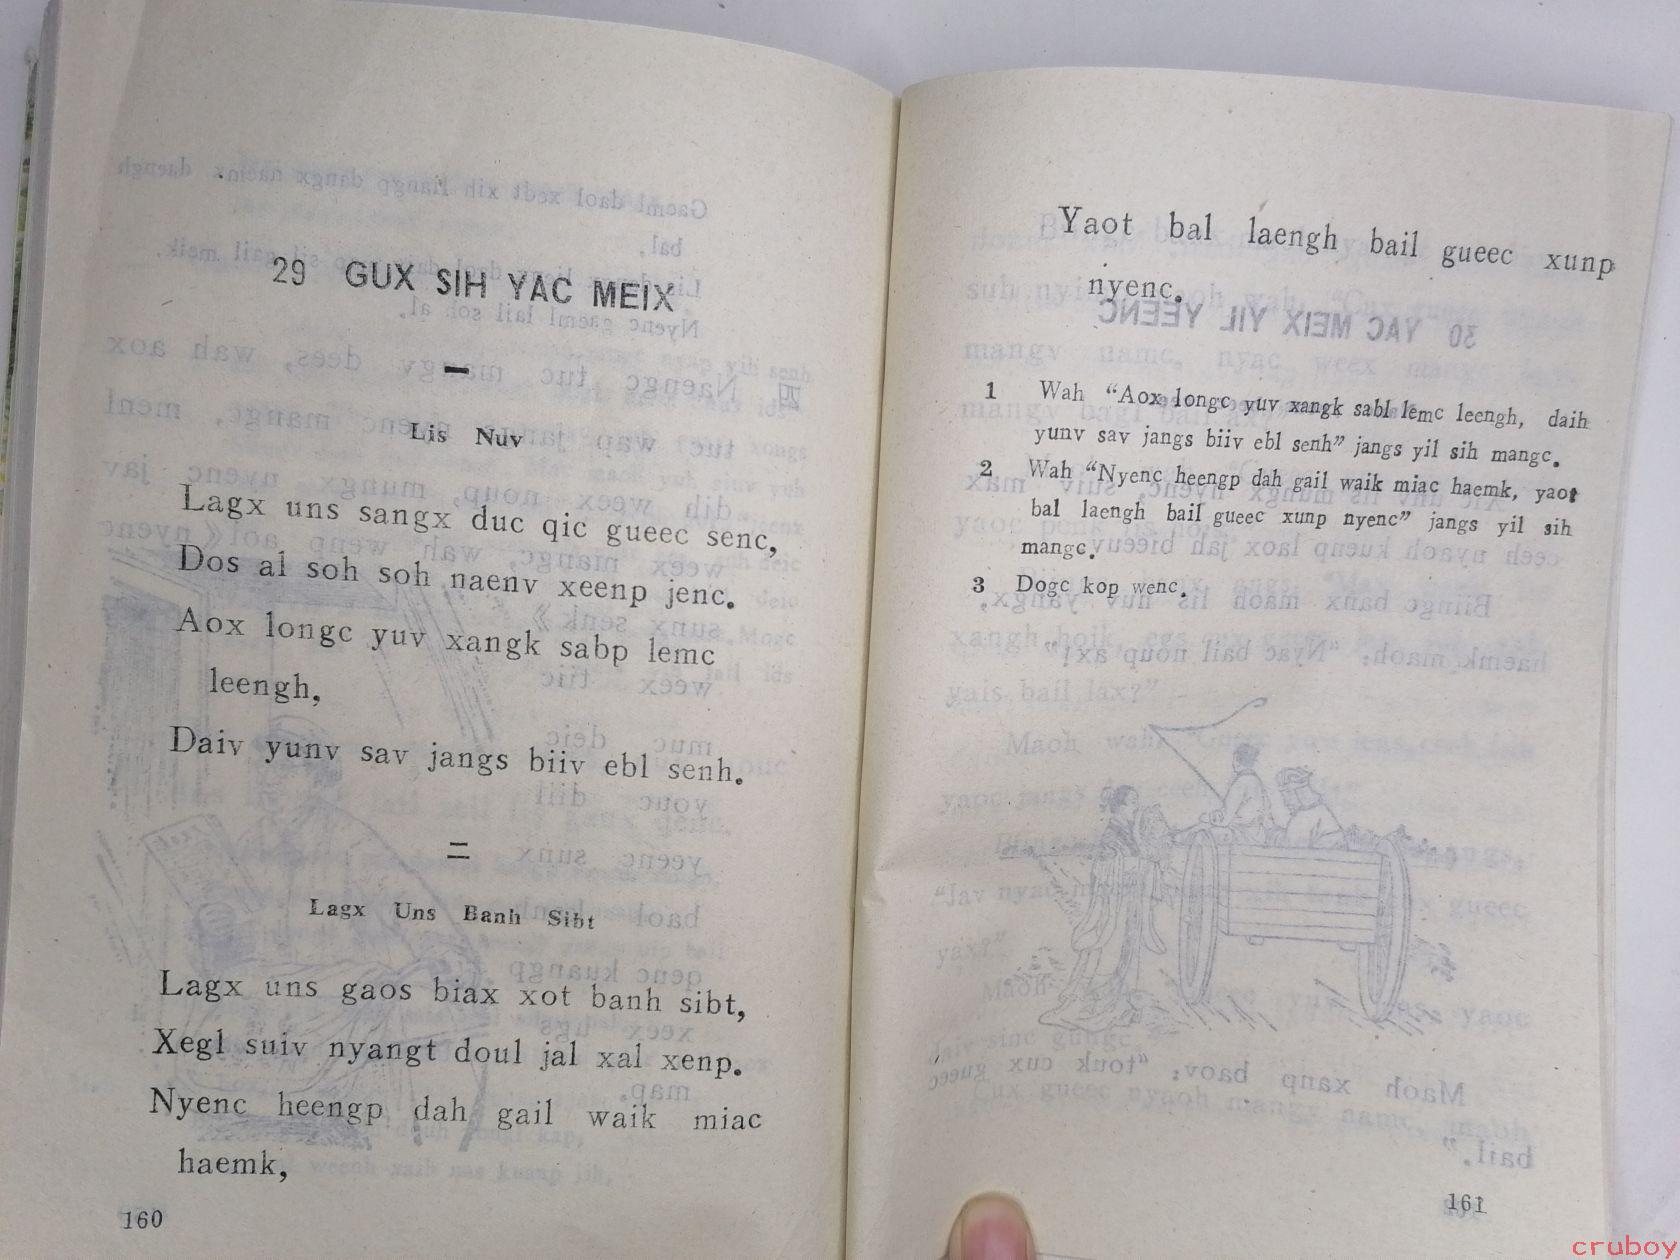 29 GUX SIH YAC MEIX
一
Lis Nuv
Lagx uns sangx duc qic gueec senc,
Dos al soh soh naenv xeenp jenc.
Aox longc yuv xangk sabp lemc
leengh,
Daiv yunv sav jangs biiv ebl senh.
二
Lagx Uns Banh Sibt
Lagx uns gaos biax xot banh sibt,
Xegl suiv nyangt doul jal xal xenp.
Nyenc heengp dah gail waik miac
haemk,
160
Yaot bal laengh bail gueec xunp
nyenc.
1 Wah “Aox longc yuv xangk sabl lemc leengh, daih
yunv sav jangs biiv ebl senh” jangs yil sih mangc.
2 Wah “Nyenc heengp dah gail waik miac haemk, yaot
bal laengh bail gueec xunp nyenc” jangs yil sih
mangc.
3 Dogc kop wenc.
161
cruboy